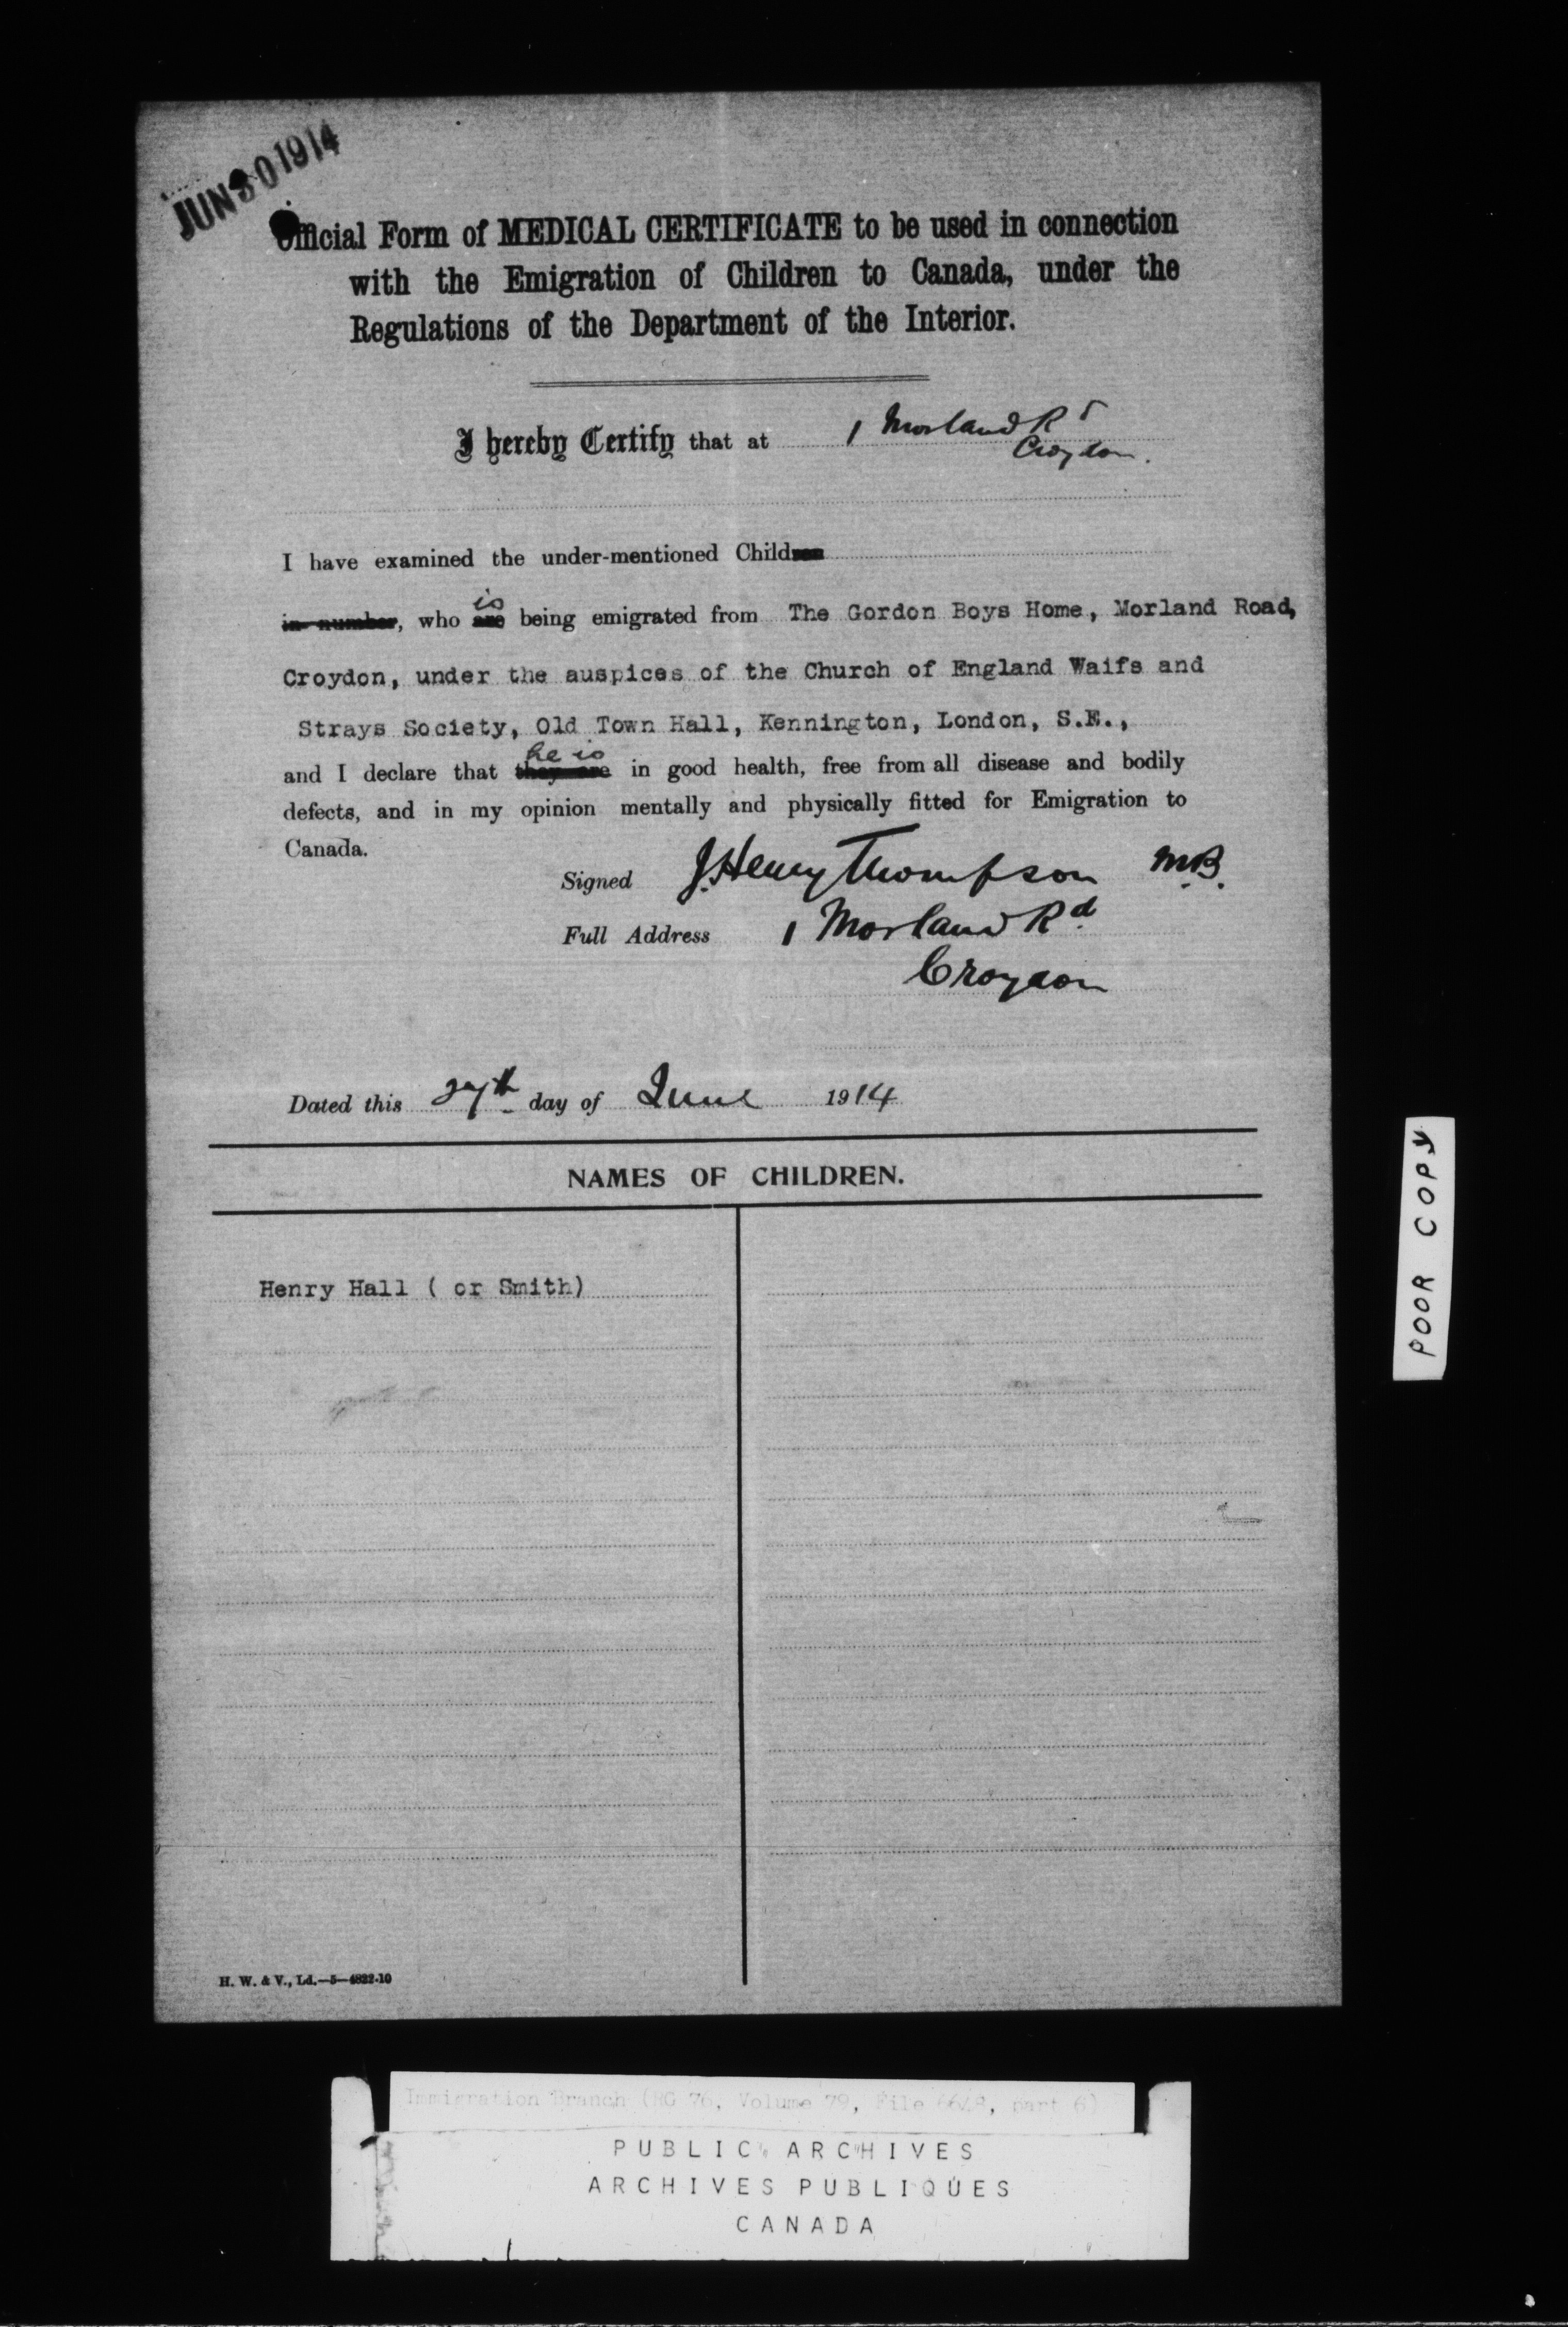 JUN 30 1914
Official Form of MEDICAL CERTIFICATE to be used in connection
with the Emigration of Children to Canada, under the
Regulations of the Department of the Interior.
I hereby Certify that at 1 Morland Rd
Croydon.
I have examined the under-mentioned Children
is
in number, who are being emigrated from The Gordon Boys Home, Morland Road,
Croydon, under the auspices of the Church of England Waifs and
Strays Society, Old Town Hall, Kennington, London, S.E.,
he is
and I declare that they are in good health, free from all disease and bodily
defects, and in my opinion mentally and physically fitted for Emigration to
Canada.
Signed J. Henry Thompson M.B.
Full Address 1 Morland Rd.
Croydon
Dated this 27th day of June 1914
NAMES OF CHILDREN.
Henry Hall ( or Smith)
H. W. & V., Ld.—5—4822-10
POOR COPY
Immigration Branch (RG 76, Volume 79, File part 6)
PUBLIC ARCHIVES
ARCHIVES PUBLIQUES
CANADA